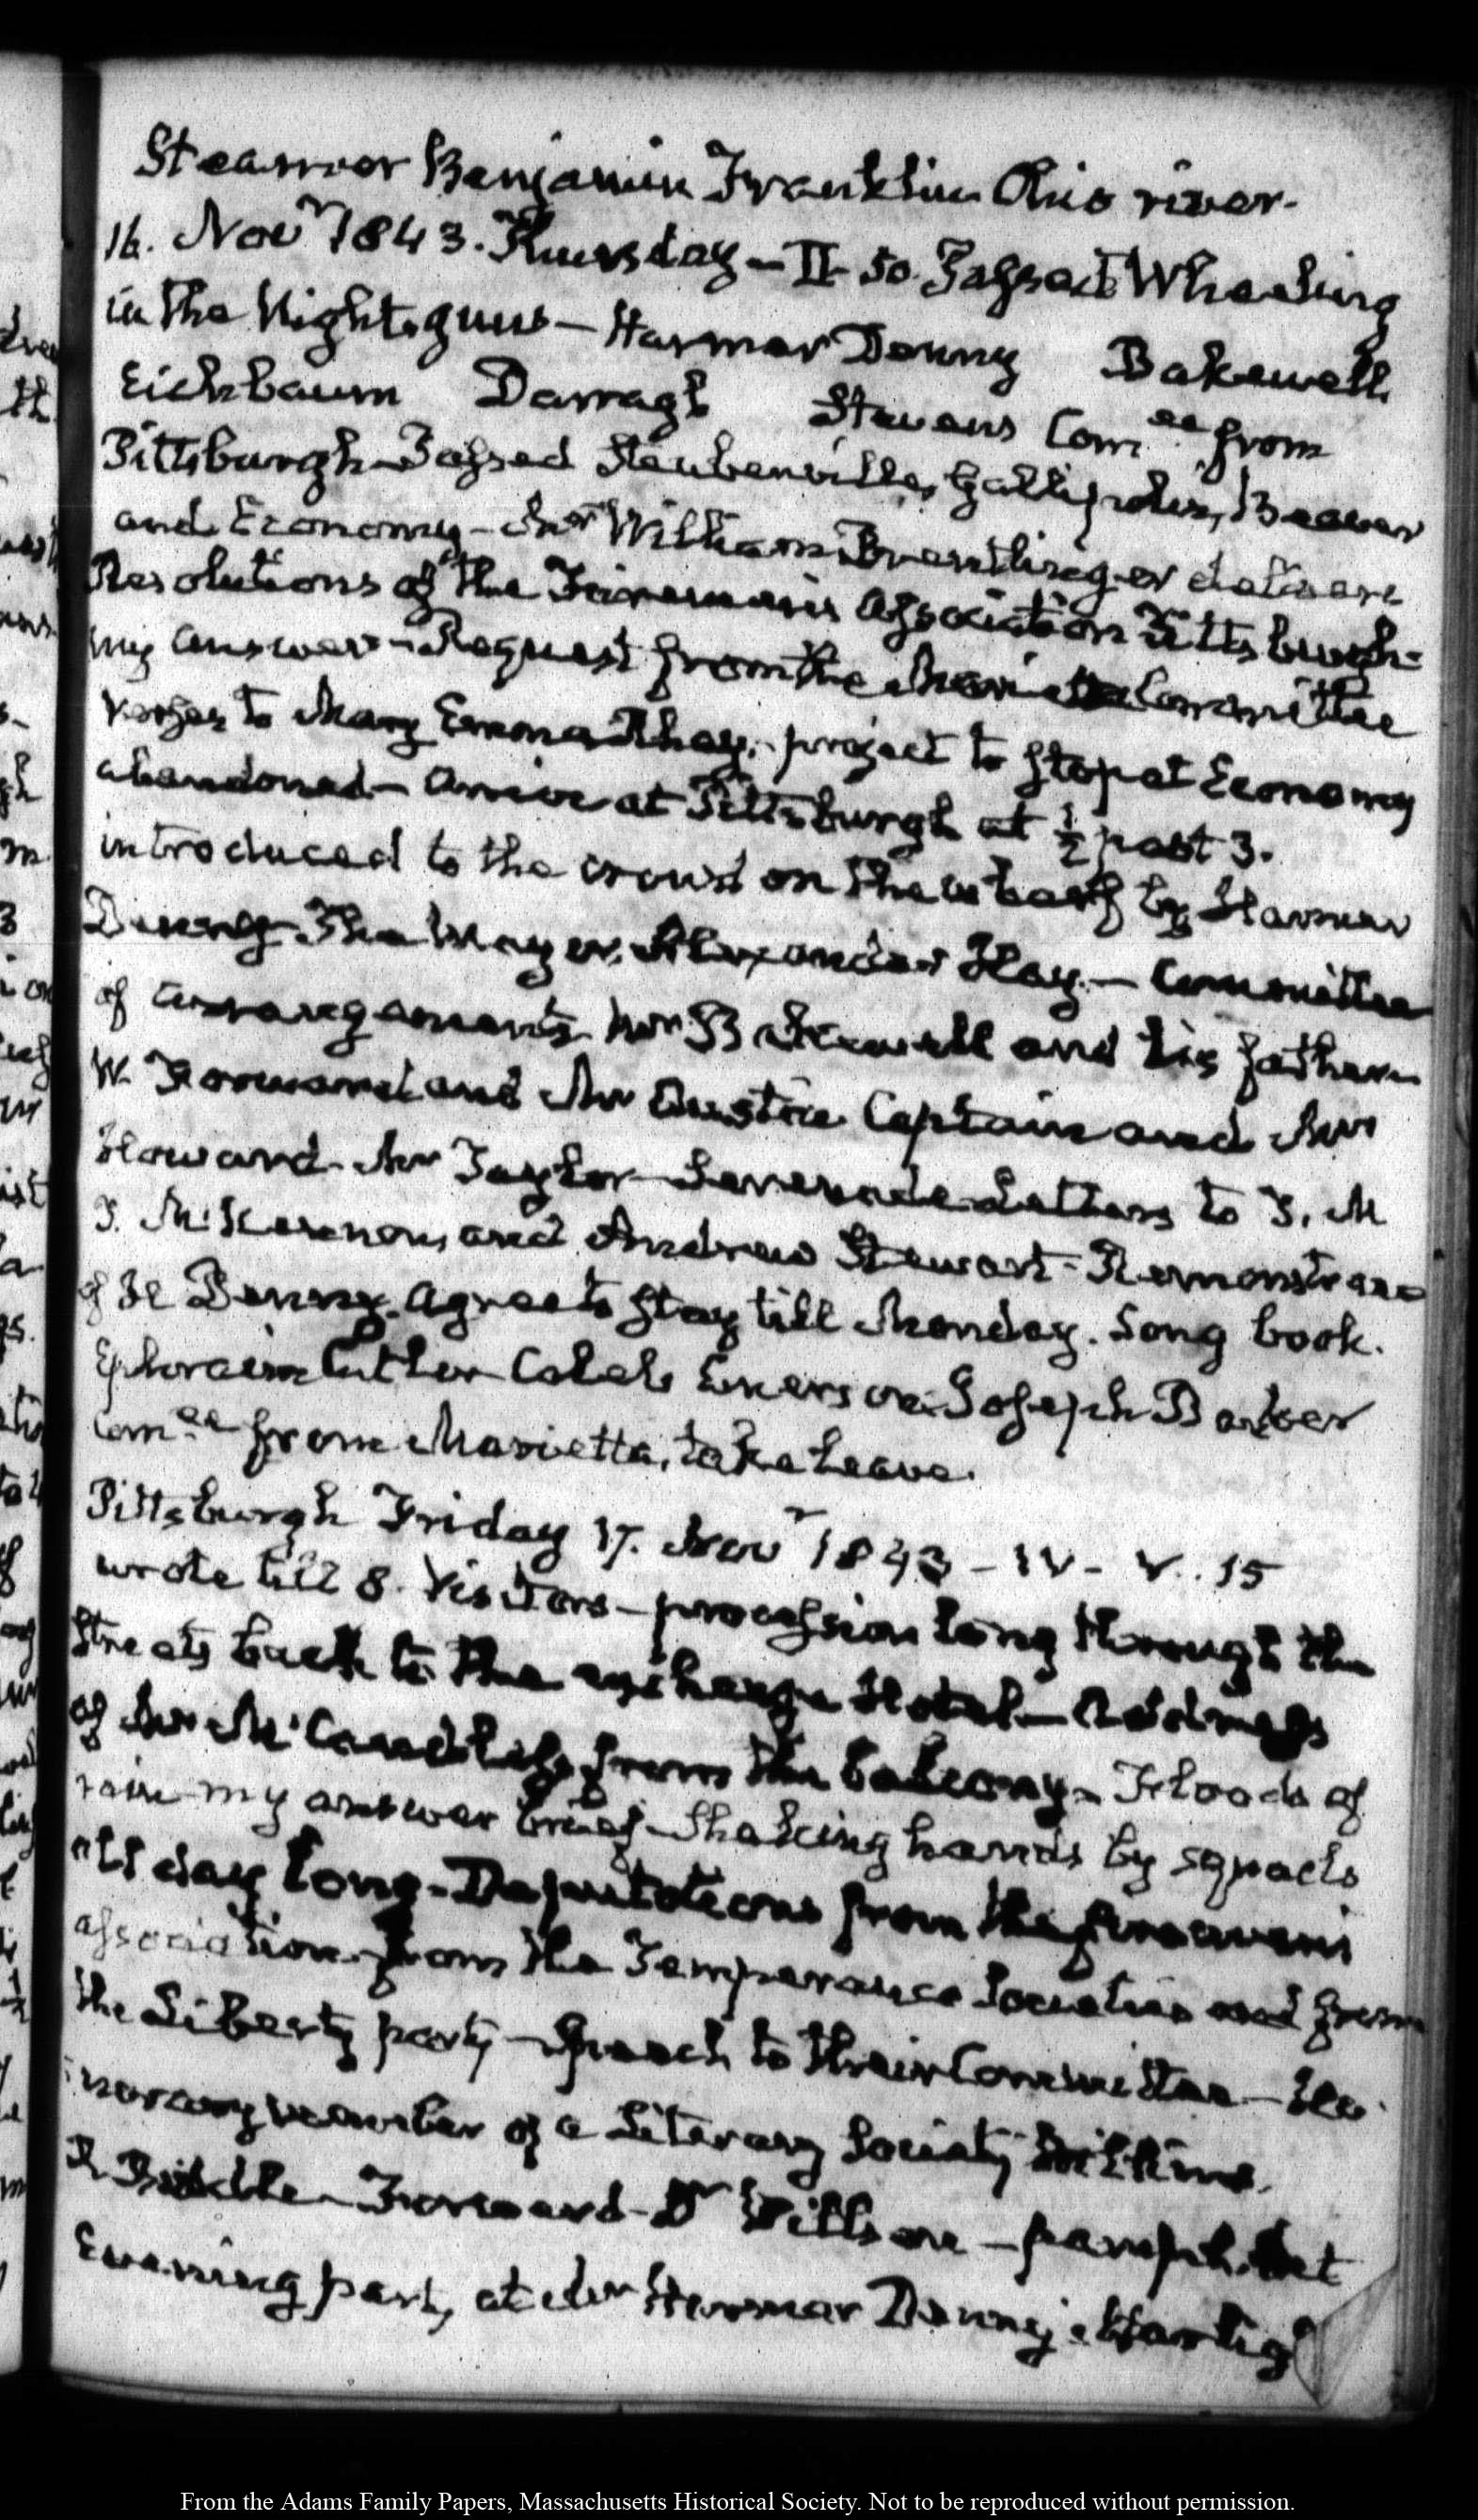 Steamer Benjamin Franklin Ohio river.
16. Novr 1843. Thursday – II. 50. Passed Wheeling
in the Night. guns – Harmar Denny Bakewell
Eichbaum Darragh Stevens Comee from
Pittsburgh – Passed Steubenville, Gallipolis, Beaver
and Economy – Mr William deliver
Resolutions of the Firemen's Association Pittsburgh.
my answer – Request from the Marietta Committee
verses to Mary Emma – project to stop at Economy
abandoned – arrive at Pittsburgh at ½ past 3.
introduced to the crowd on the wharf by Harmar
Denny – The Mayor, Alexander Hay. – Committee
of arrangements Mr Bakewell and his father
W. Forward and Mr Austin Captain and Mrs
Howard – Mr Taylor – Serenade – Letters to T. M
T. McKennon, and Andrew Stewart – Remonstrance
of H Denny. Agree to stay till Monday. Song book.
Ephraim Cutler Caleb Emerson Joseph Barker
Comee from Marietta, take leave.
Pittsburgh Friday 17. Novr 1843 – IV – V. 15
wrote till 8. Visitors – procession long through the
streets back to the exchange Hotel – Address
of Mr McCandless from the balcony – Floods of
rain – my answer brief – shaking hands by squads
all day long – Deputations from the firemens
association from the Temperance Societies and from
the Liberty party – Speech to their Committee – Ho-
norary member of a Literary Society
R. Biddle – Forward – Dr – pamphlet
Evening party at Mr Harmar Denny's
From the Adams Family Papers, Massachusetts Historical Society. Not to be reproduced without permission.